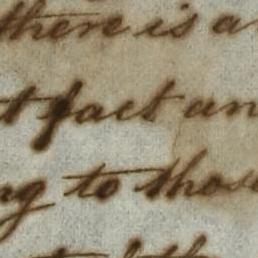 there is a
t fact an
ng to those